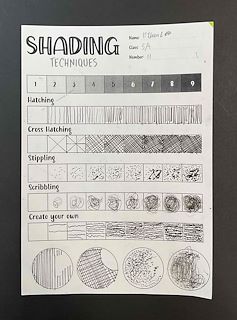 SHADING
TECHNIQUES
Name
Class 5A
Number 11
1 2 3 4 5 6 7 8 9
Hatching
Cross Hatching
Stippling
Scribbling
Create your own